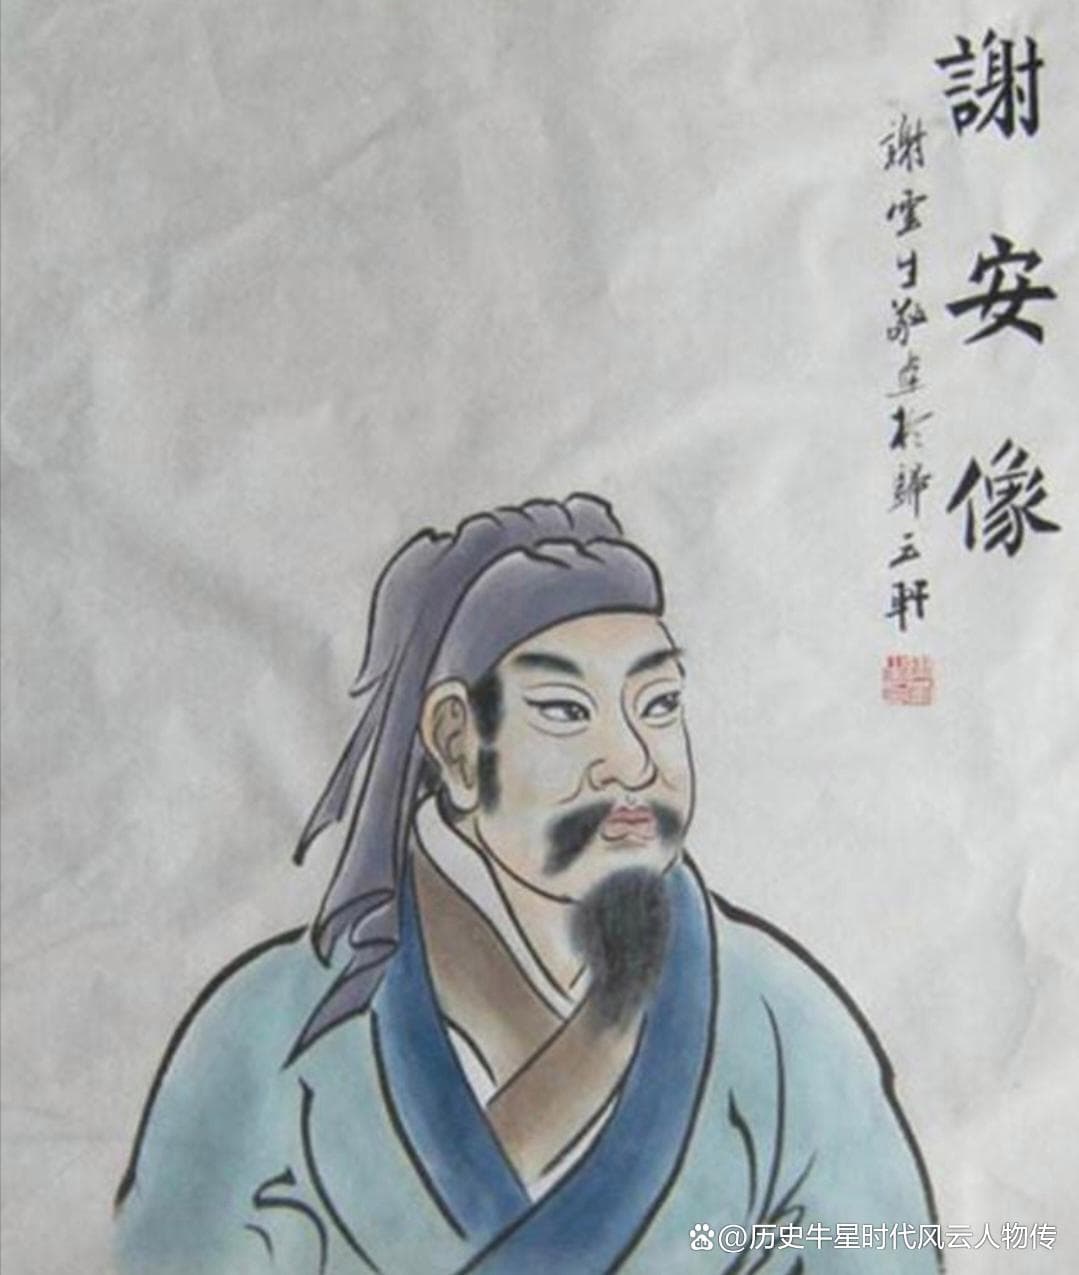 謝安像
謝雲生敬寫於歸雲軒
@历史牛星时代风云人物传